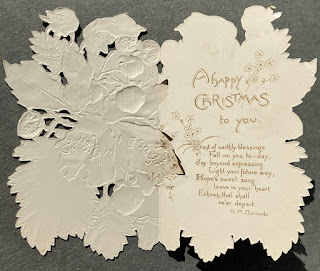 A happy
CHRISTMAS
to you.
Best of earthly blessings
Fall on you to-day,
day beyond expressing
Light your future way,
Hope's sweet song
leave in your heart
Echoes that shall
ne'er depart.
H. M. Burnside